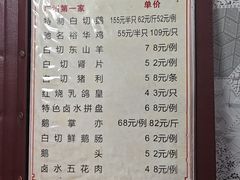 第一家 单价
特制白切鹅 155元半只 62元/斤52元/例
驰名裕华鸡 55元/半只 109元/只
白切东山羊 7 8元/例
白切肾片 5 2元/例
白切猪利 5 8元/条
红烧乳鸽皇 4 3元/只
特色卤水拼盘 6 8元/例
鹅掌亦 68元/例 82元/斤
白切鲜鹅肠 6 2元/例
鹅头 5 2元/例
卤水五花肉 4 8元/例